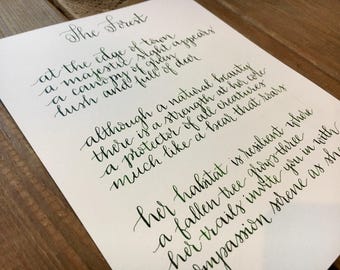 The Forest
at the edge of town
a majestic sight appears
a canopy of green
lush and full of deer
although a natural beauty
there is a strength at her core
a protector of all creatures
much like a bear that roars
her habitat is resilient when
a fallen tree grows three
her trails invite you in with
compassion serene as she